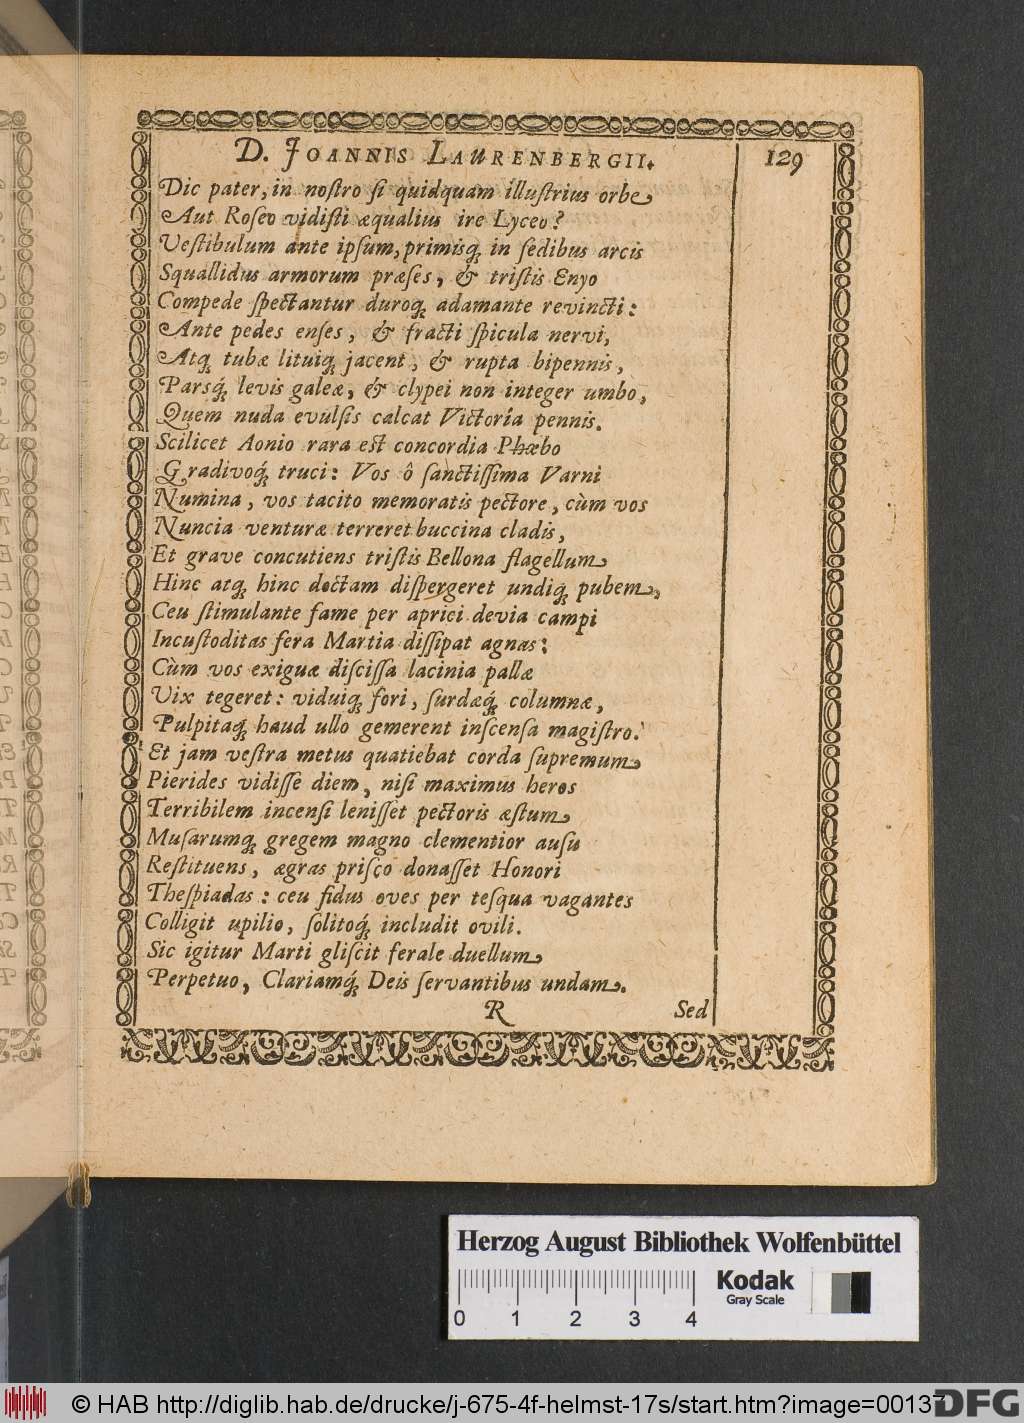 D. JOANNIS LAURENBERGII. 129
Dic pater, in nostro si quidquam illustrius orbe
Aut Roseo vidisti æqualius ire Lyceo?
Vestibulum ante ipsum, primisq́; in sedibus arcis
Squallidus armorum præses, & tristis Enyo
Compede spectantur duroq́; adamante revincti:
Ante pedes enses, & fracti spicula nervi,
Atq́; tubæ lituiq́; jacent, & rupta bipennis,
Parsq́; levis galeæ, & clypei non integer umbo,
Quem nuda evulsis calcat Victoria pennis.
Scilicet Aonio rara est concordia Phœbo
Gradivoq́; truci: Vos ô sanctissima Varni
Numina, vos tacito memoratis pectore, cùm vos
Nuncia venturæ terreret buccina cladis,
Et grave concutiens tristis Bellona flagellum
Hinc atq́; hinc doctam dispergeret undiq́; pubem,
Ceu stimulante fame per aprici devia campi
Incustoditas fera Martia dissipat agnas:
Cùm vos exiguæ discissa lacinia pallæ
Vix tegeret: viduiq́; fori, surdæq́; columnæ,
Pulpitaq́; haud ullo gemerent inscensa magistro.
Et jam vestra metus quatiebat corda supremum
Pierides vidisse diem, nisi maximus heros
Terribilem incensi lenisset pectoris æstum
Musarumq́; gregem magno clementior ausu
Restituens, ægras prisco donasset Honori
Thespiadas: ceu fidus oves per tesqua vagantes
Colligit upilio, solitoq́; includit ovili.
Sic igitur Marti gliscit ferale duellum
Perpetuo, Clariamq́; Deis servantibus undam.
R Sed
Herzog August Bibliothek Wolfenbüttel
Kodak
Gray Scale
0 1 2 3 4
© HAB http://diglib.hab.de/drucke/j-675-4f-helmst-17s/start.htm?image=00137
DFG